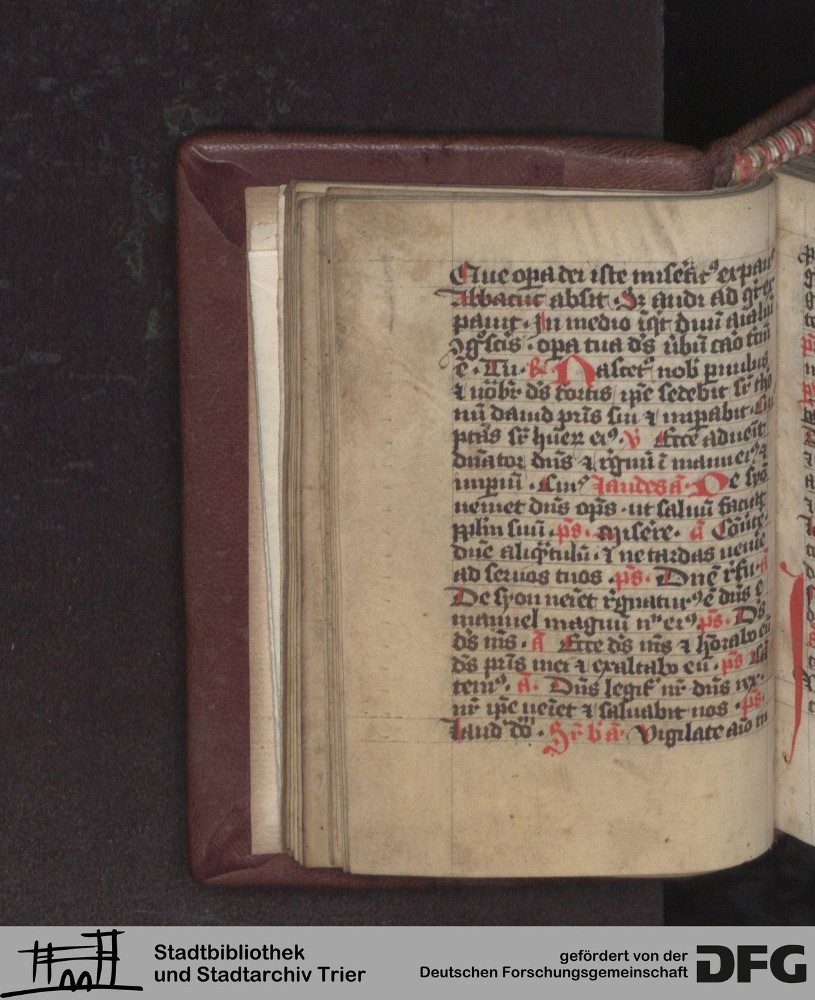 Que opa dei iste miserat⁹ expau
Abbacuc absit · Sz audi ad qd ex
pauit · In medio iqt duū aialiū
ꝯg⁹scis · opa tua ds ubū caō fcm̄
ē · Tu · R. Nascet² nob puulus
⁊ uobr ds fortis ipe sedebit sr tho
nū dauid pris sui ⁊ impabit · Cui⁹
ptas sr huer ei⁹ · V Ecce adueit
dnator dns ⁊ rgnū ī manu ei⁹ ⁊
impiū · Cui⁹ laudes a · De syō
ueniet dns ops · ut saluū faciat
pplm suū · ps · misere · a Conūte
dne aliqtulū · ⁊ ne tardas uenie
ad seruos tuos · ps · Dne rfu · a
De syon neiet rgnatur⁹ ē dns e
manuel magnū nᵒ ei⁹ · ps · Ds
ds ms · a Ecce ds ms ⁊ hōrabo eū
ds pris mei ⁊ exaltabo eū · ps
tem⁹ · a · Dns legif nr dns rex
nr ipe ueiet ⁊ saluabit nos · ps ·
laud dō · Sr b a Vigilate aīo ī
Stadtbibliothek
und Stadtarchiv Trier
gefördert von der
Deutschen Forschungsgemeinschaft
DFG